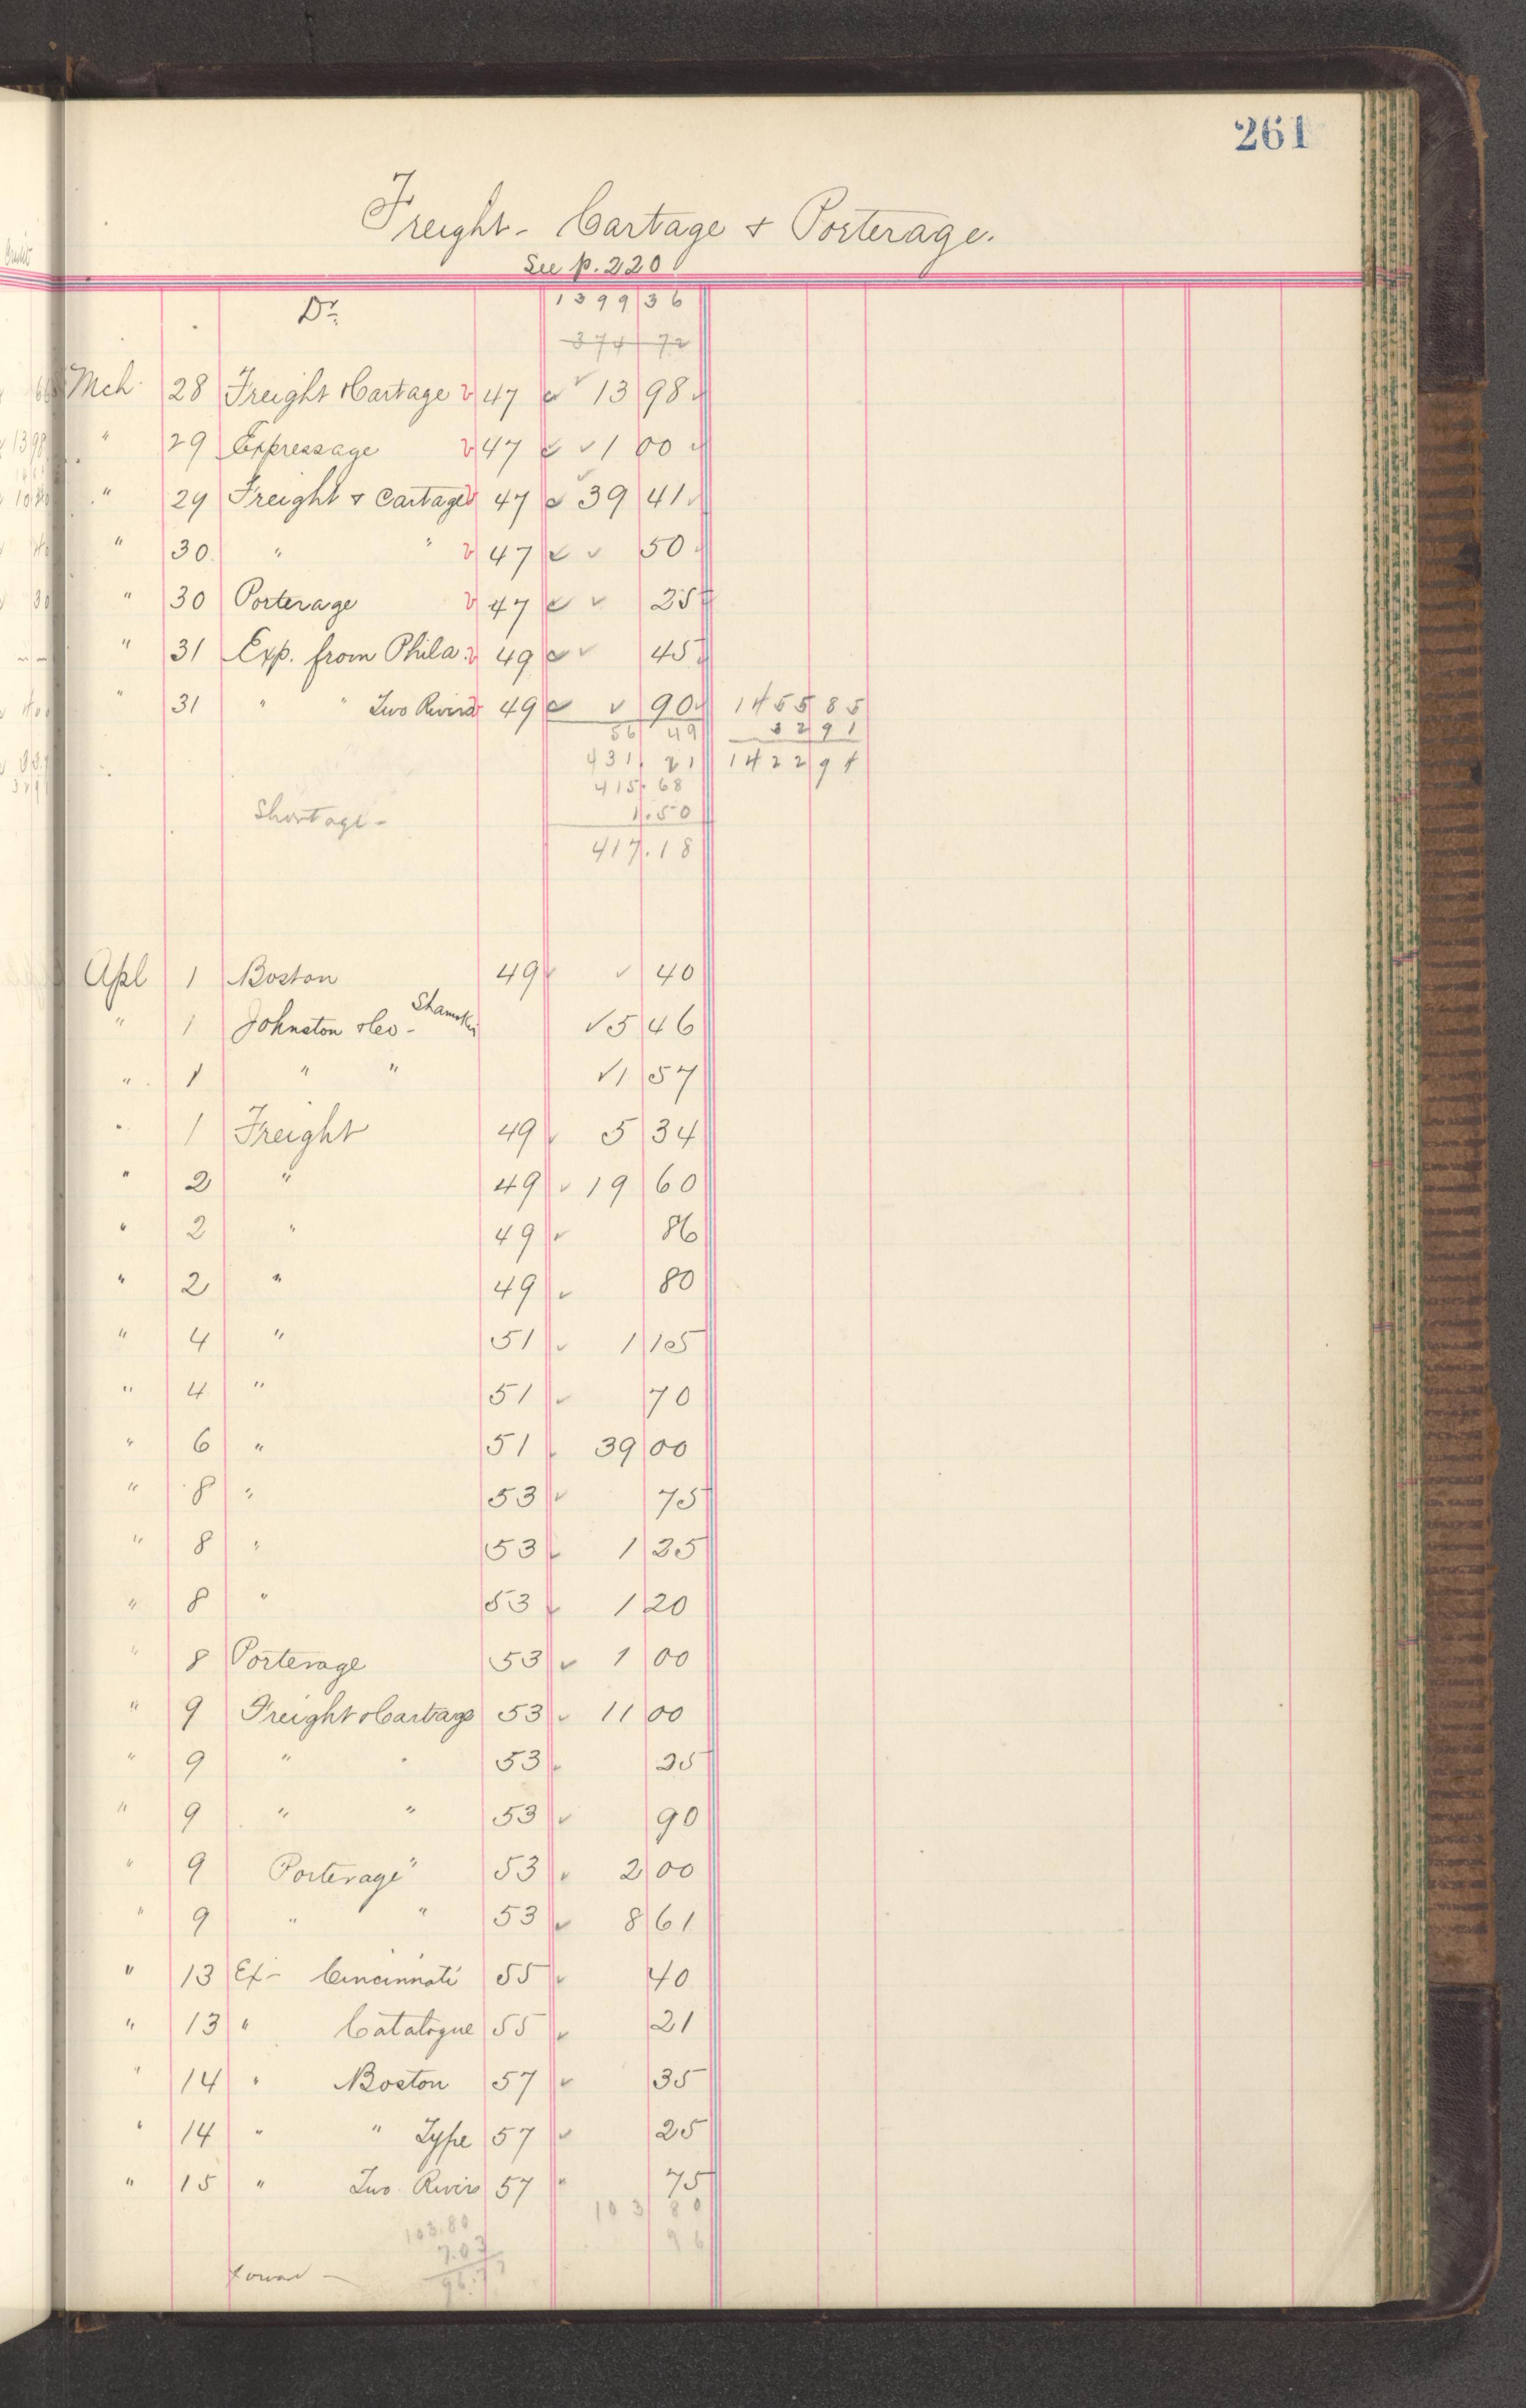 261
Freight - Cartage & Porterage.
See p. 220
Dr. 1399 36
374 72
Mch 28 Freight & Cartage 47 13 98
" 29 Expressage 47 1 00
" 29 Freight & Cartage 47 39 41
" 30 " " 47 50
" 30 Porterage 47 25
" 31 Exp. from Phila. 49 45
" 31 " " Two Rivers 49 90 1455 85
56 49 32 91
431. 21 1422 94
415. 68
Shortage - 1.50
417.18
Apl 1 Boston 49 40
" 1 Johnston & Co - 5 46
" 1 " " 1 57
" 1 Freight 49 5 34
" 2 " 49 19 60
" 2 " 49 86
" 2 " 49 80
" 4 " 51 1 15
" 4 " 51 70
" 6 " 51 39 00
" 8 " 53 75
" 8 " 53 1 25
" 8 " 53 1 20
" 8 Porterage 53 1 00
" 9 Freight & Cartage 53 11 00
" 9 " " 53 25
" 9 " " 53 90
" 9 Porterage " 53 2 00
" 9 " " 53 8 61
" 13 Ex - Cincinnati 55 40
" 13 " Catalogue 55 21
" 14 " Boston 57 35
" 14 " " Type 57 25
" 15 " Two Rivers 57 75
103 80
103.80 96
7.03
96.77